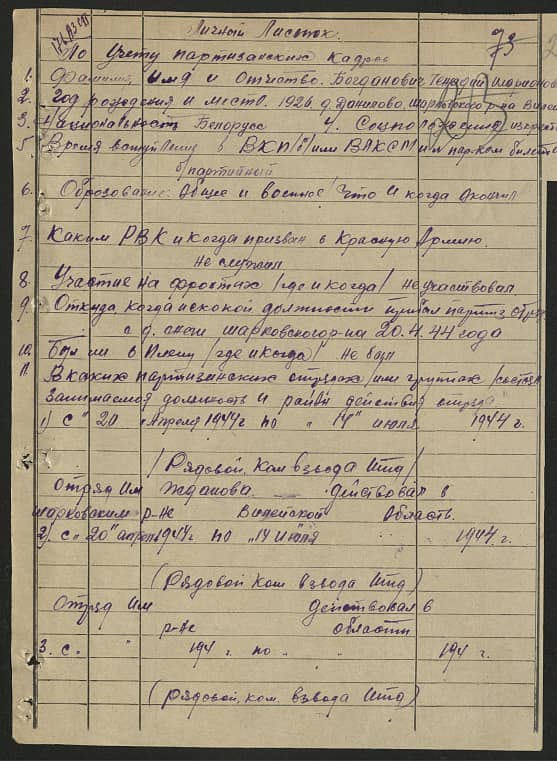 Личный Листок.
73
По учету партизанских кадров
1. Фамилия, имя и отчество. Богданович Генадий
2. Год рождения и место. 1926. д. Данилово, Шарковского р-на Вилей
3. Национальность Белорус 4. Соцположение
5. Время вступления в ВКП/б/ или ВЛКСМ и парт.ком билета
б/партийный
6. Образование: общее и военное /что и когда окончил
7. Каким РВК и когда призван в Красную Армию.
не служил
8. Участие на фронтах /где и когда/ не участвовал.
9. Откуда когда и с какой должности прибыл партиз. отряд
с д. шарковского р-на 20.4.44 года
10. Был ли в плену /где и когда/ не был
11. В каких партизанских отрядах /или группах /состоял
занимаемая должность и район действия отряда
1) с "20 " Апреля 1944 г по " 14" июля 1944 г.
/Рядовой, ком взвода итд/
Отряд им Жданова. действовал в
шарковским р-не Вилейской область.
2) с "20" апрель 1944 г. по "14 июля 1944 г.
(Рядовой ком взвода итд)
Отряд им действовал в
р-не области
3. с. " 194 г. по " " 194 г.
(рядовой, ком. взвода итд)